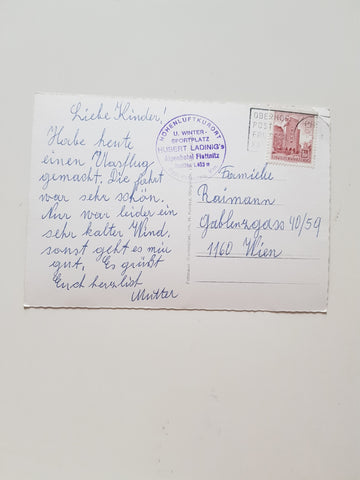 Liebe Kinder!
Habe heute
einen Ausflug
gemacht. Die Fahrt
war sehr schön.
Nur war leider ein
sehr kalter Wind,
sonst geht es mir
gut. Es grüßt
Euch herzlist
Mutter
HÖHENLUFTKURORT
U. WINTER-
SPORTPLATZ
HUBERT LADINIG's
Alpenhotel Flattnitz
Familie
Raimann
Gablenzgass 40/59
1160 Wien